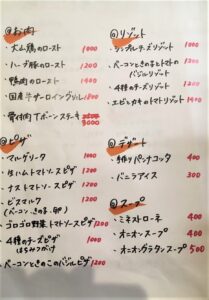 @お肉
・大山鶏のロースト 1000
・ハーブ豚のロースト 1200
・鴨肉のロースト 1400
・国産牛サーロイングリル 1800
・骨付肉Tボーンステーキ 3000
@ピザ
・マルゲリータ 1000
・生ハムトマトソースピザ 1200
・ナストマトソースピザ 1200
・ビスマルク 1200
(ベーコン、きのこ、卵)
・ゴロゴロ野菜トマトソースピザ 1200
・4種のチーズピザ 1100
はちみつがけ
・ベーコンときのこのバジルピザ 1200
@リゾット
・シンプルチーズリゾット 1000
・ベーコンときの子とトマトの
バジルリゾット 1200
・4種のチーズリゾット 1200
・エビとカキのトマトリゾット 1400
@デザート
・手作りパンナコッタ 400
・バニラアイス 300
@スープ
・ミネストローネ 400
・オニオンスープ 400
・オニオングラタンスープ 500